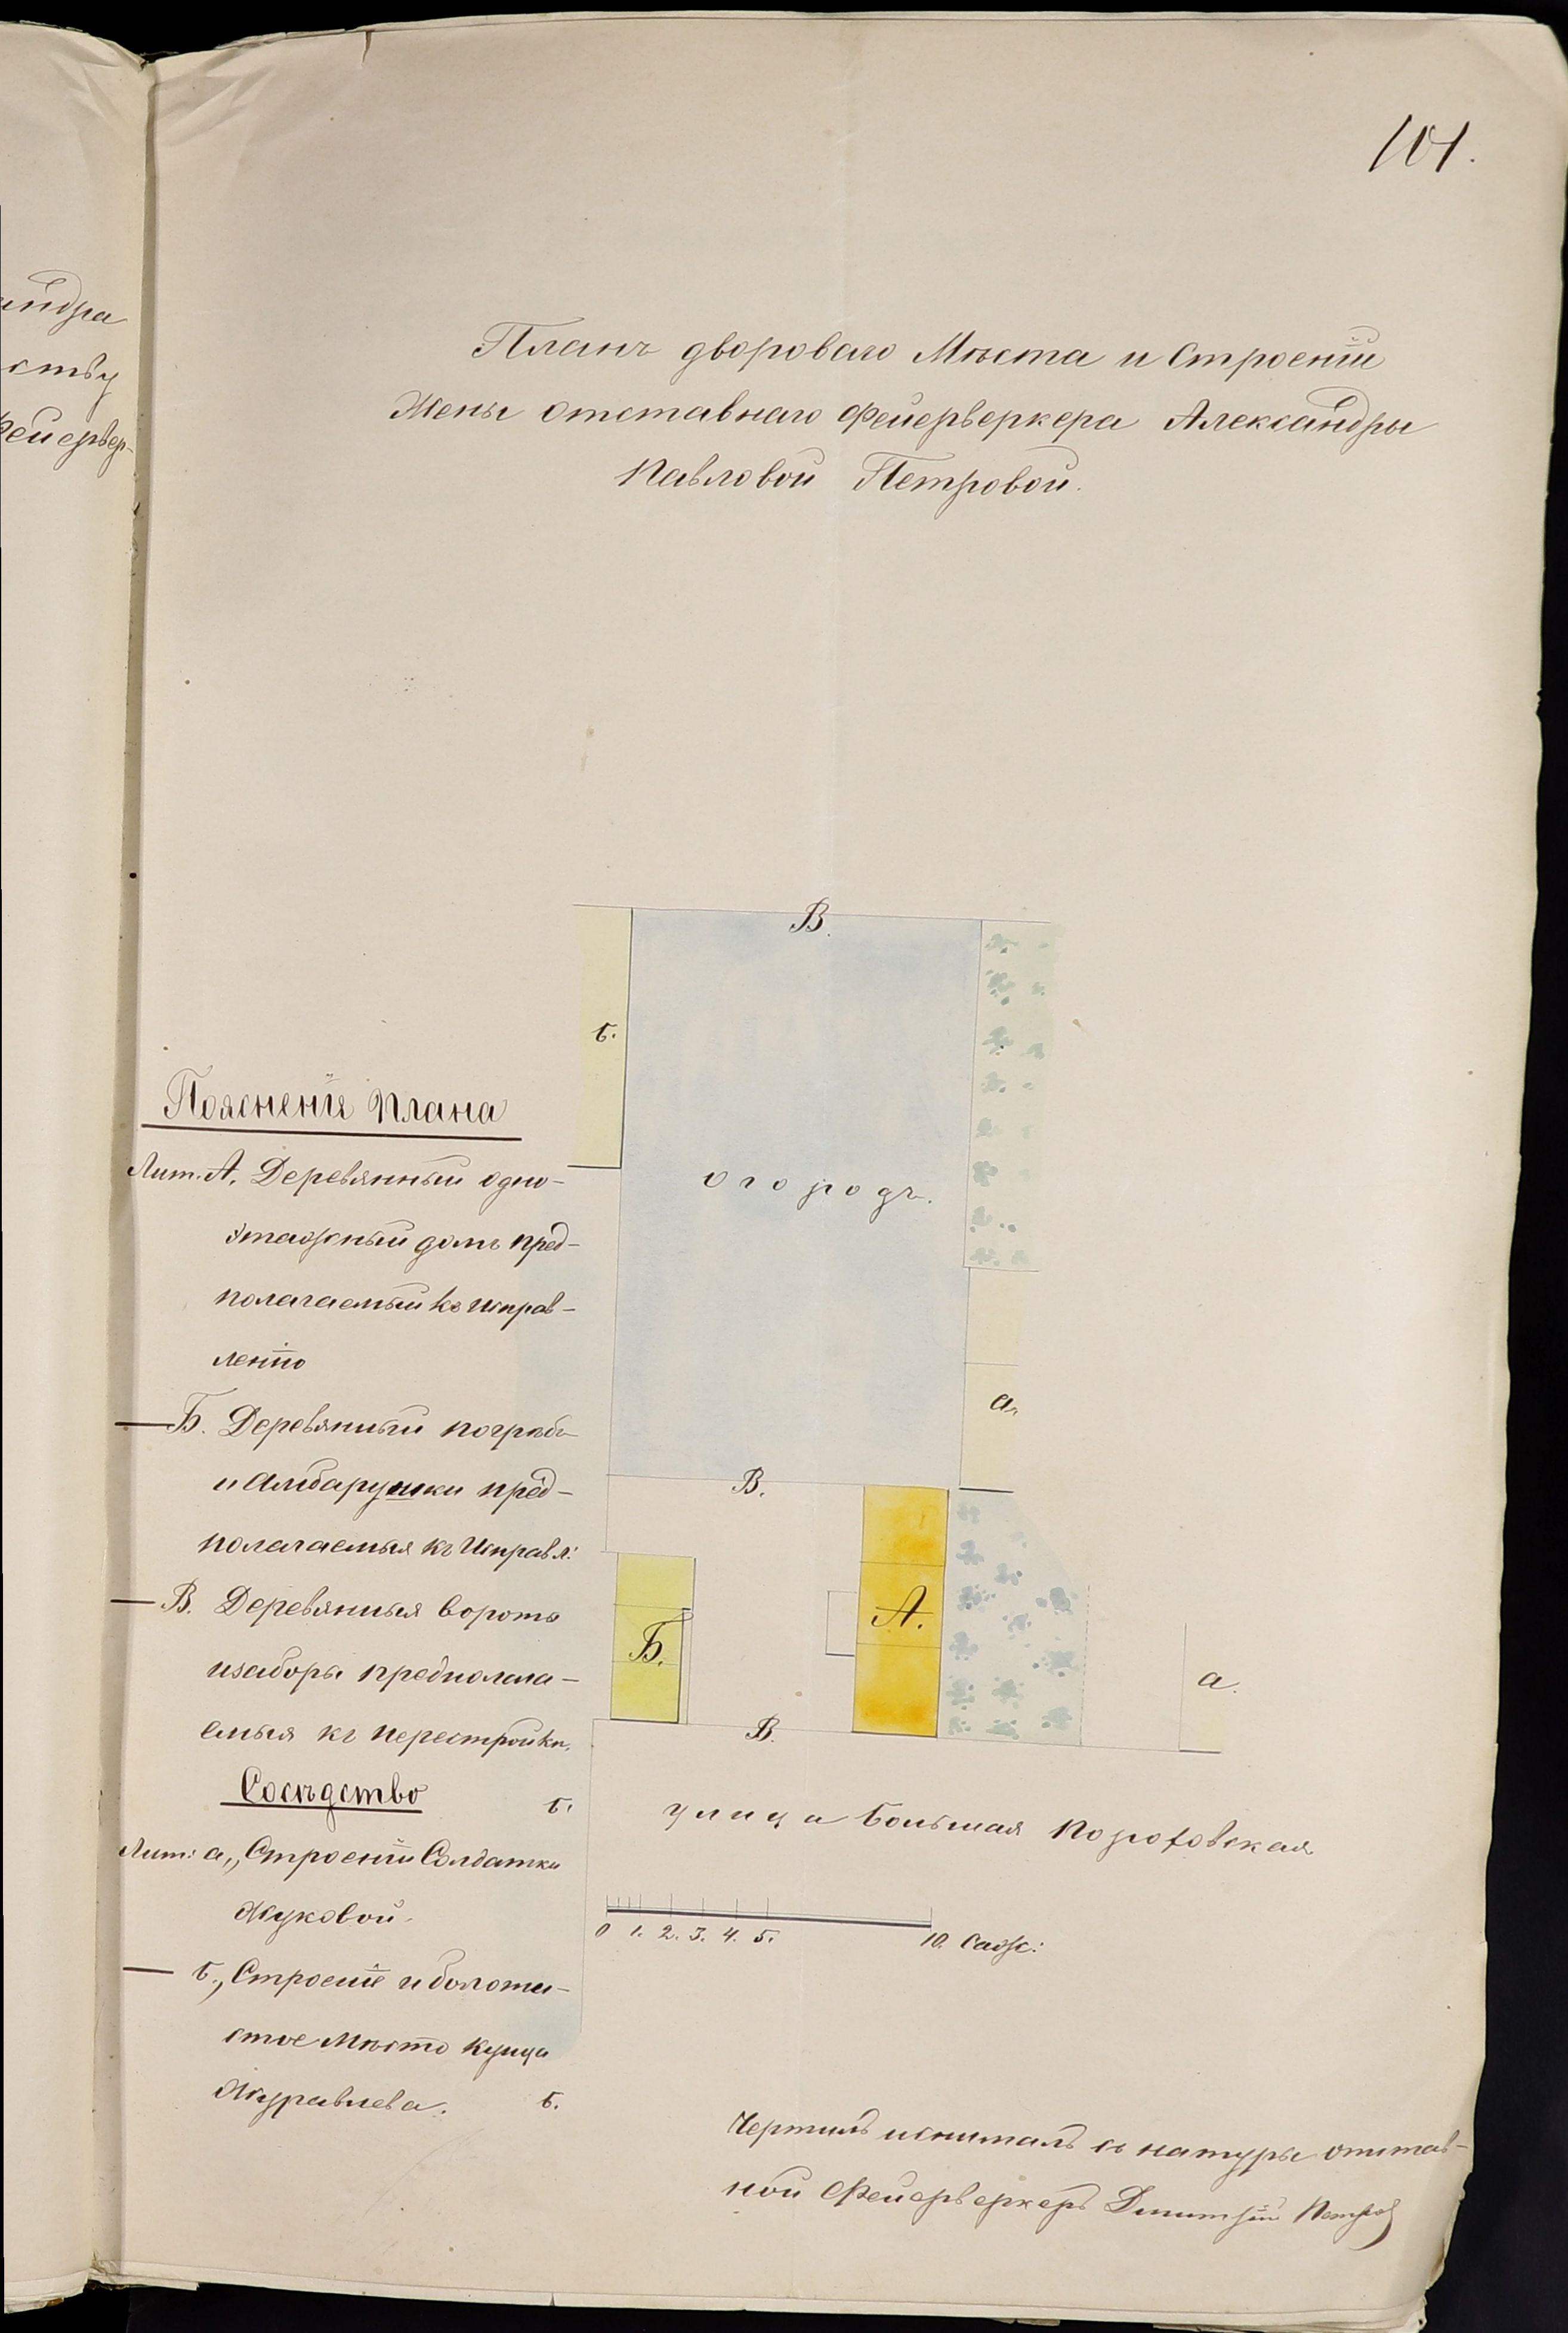 101.
андра
ству
Фейервер-
Планъ двороваго Мѣста и Строеній
Жены отставнаго Фейерверкера Александры
Павловой Петровой.
В.
б.
огородъ.
а.
В.
Поясненія Плана
Лит. А. Деревянный одно-
этажный домъ пред-
полагаемый къ исправ-
ленію
— Б. Деревяный погребъ
и Амбарушки пред-
полагаемыя къ Исправл:
— В. Деревянныя вороты
и заборы предполага-
емыя къ перестройки.
Сосѣдство
Лит: а., Строеніи Солдатки
Жуковой.
— б., Строеніе и болоти-
стое Мѣсто купца
Журавлева.
Б.
А.
В.
а.
б.
улица Большая Пороховская
0 1. 2. 3. 4. 5. 10. Саж:
б.
Чертилъ и снималъ съ натуры отстав-
ной Фейерверкеръ Дмитрій Петровъ